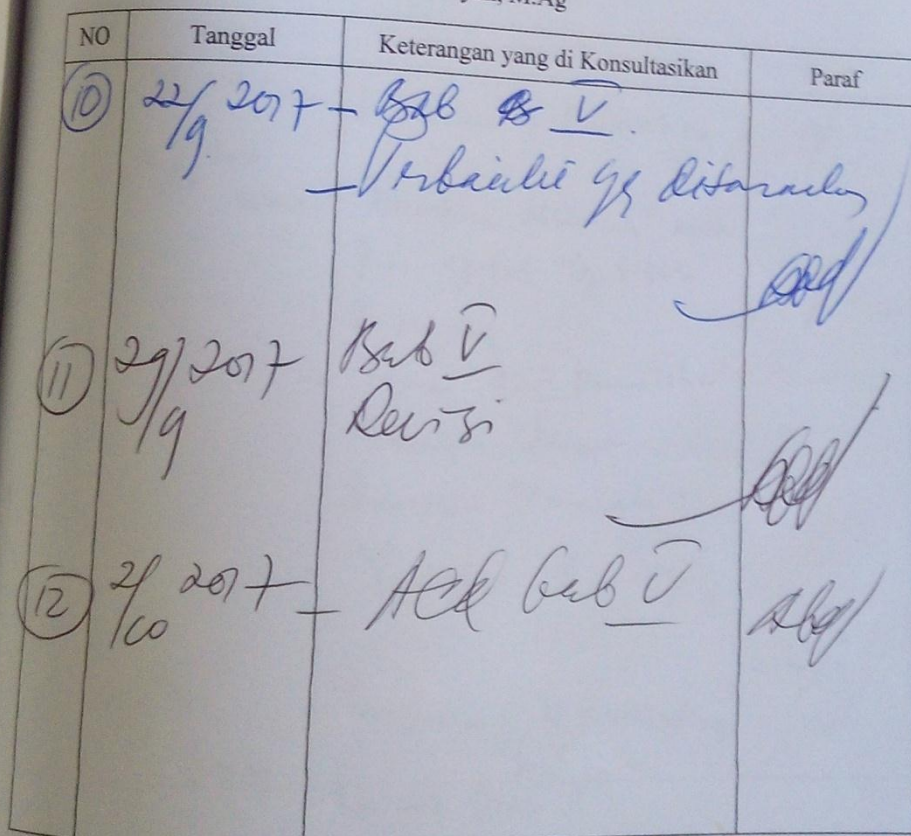 M.Ag
NO Tanggal Keterangan yang di Konsultasikan Paraf
10 22/9 2017 - Bab V.
- yg disarankan
11 29/9 2017 Bab V
Revisi
12 2/10 2017 - Acc bab V